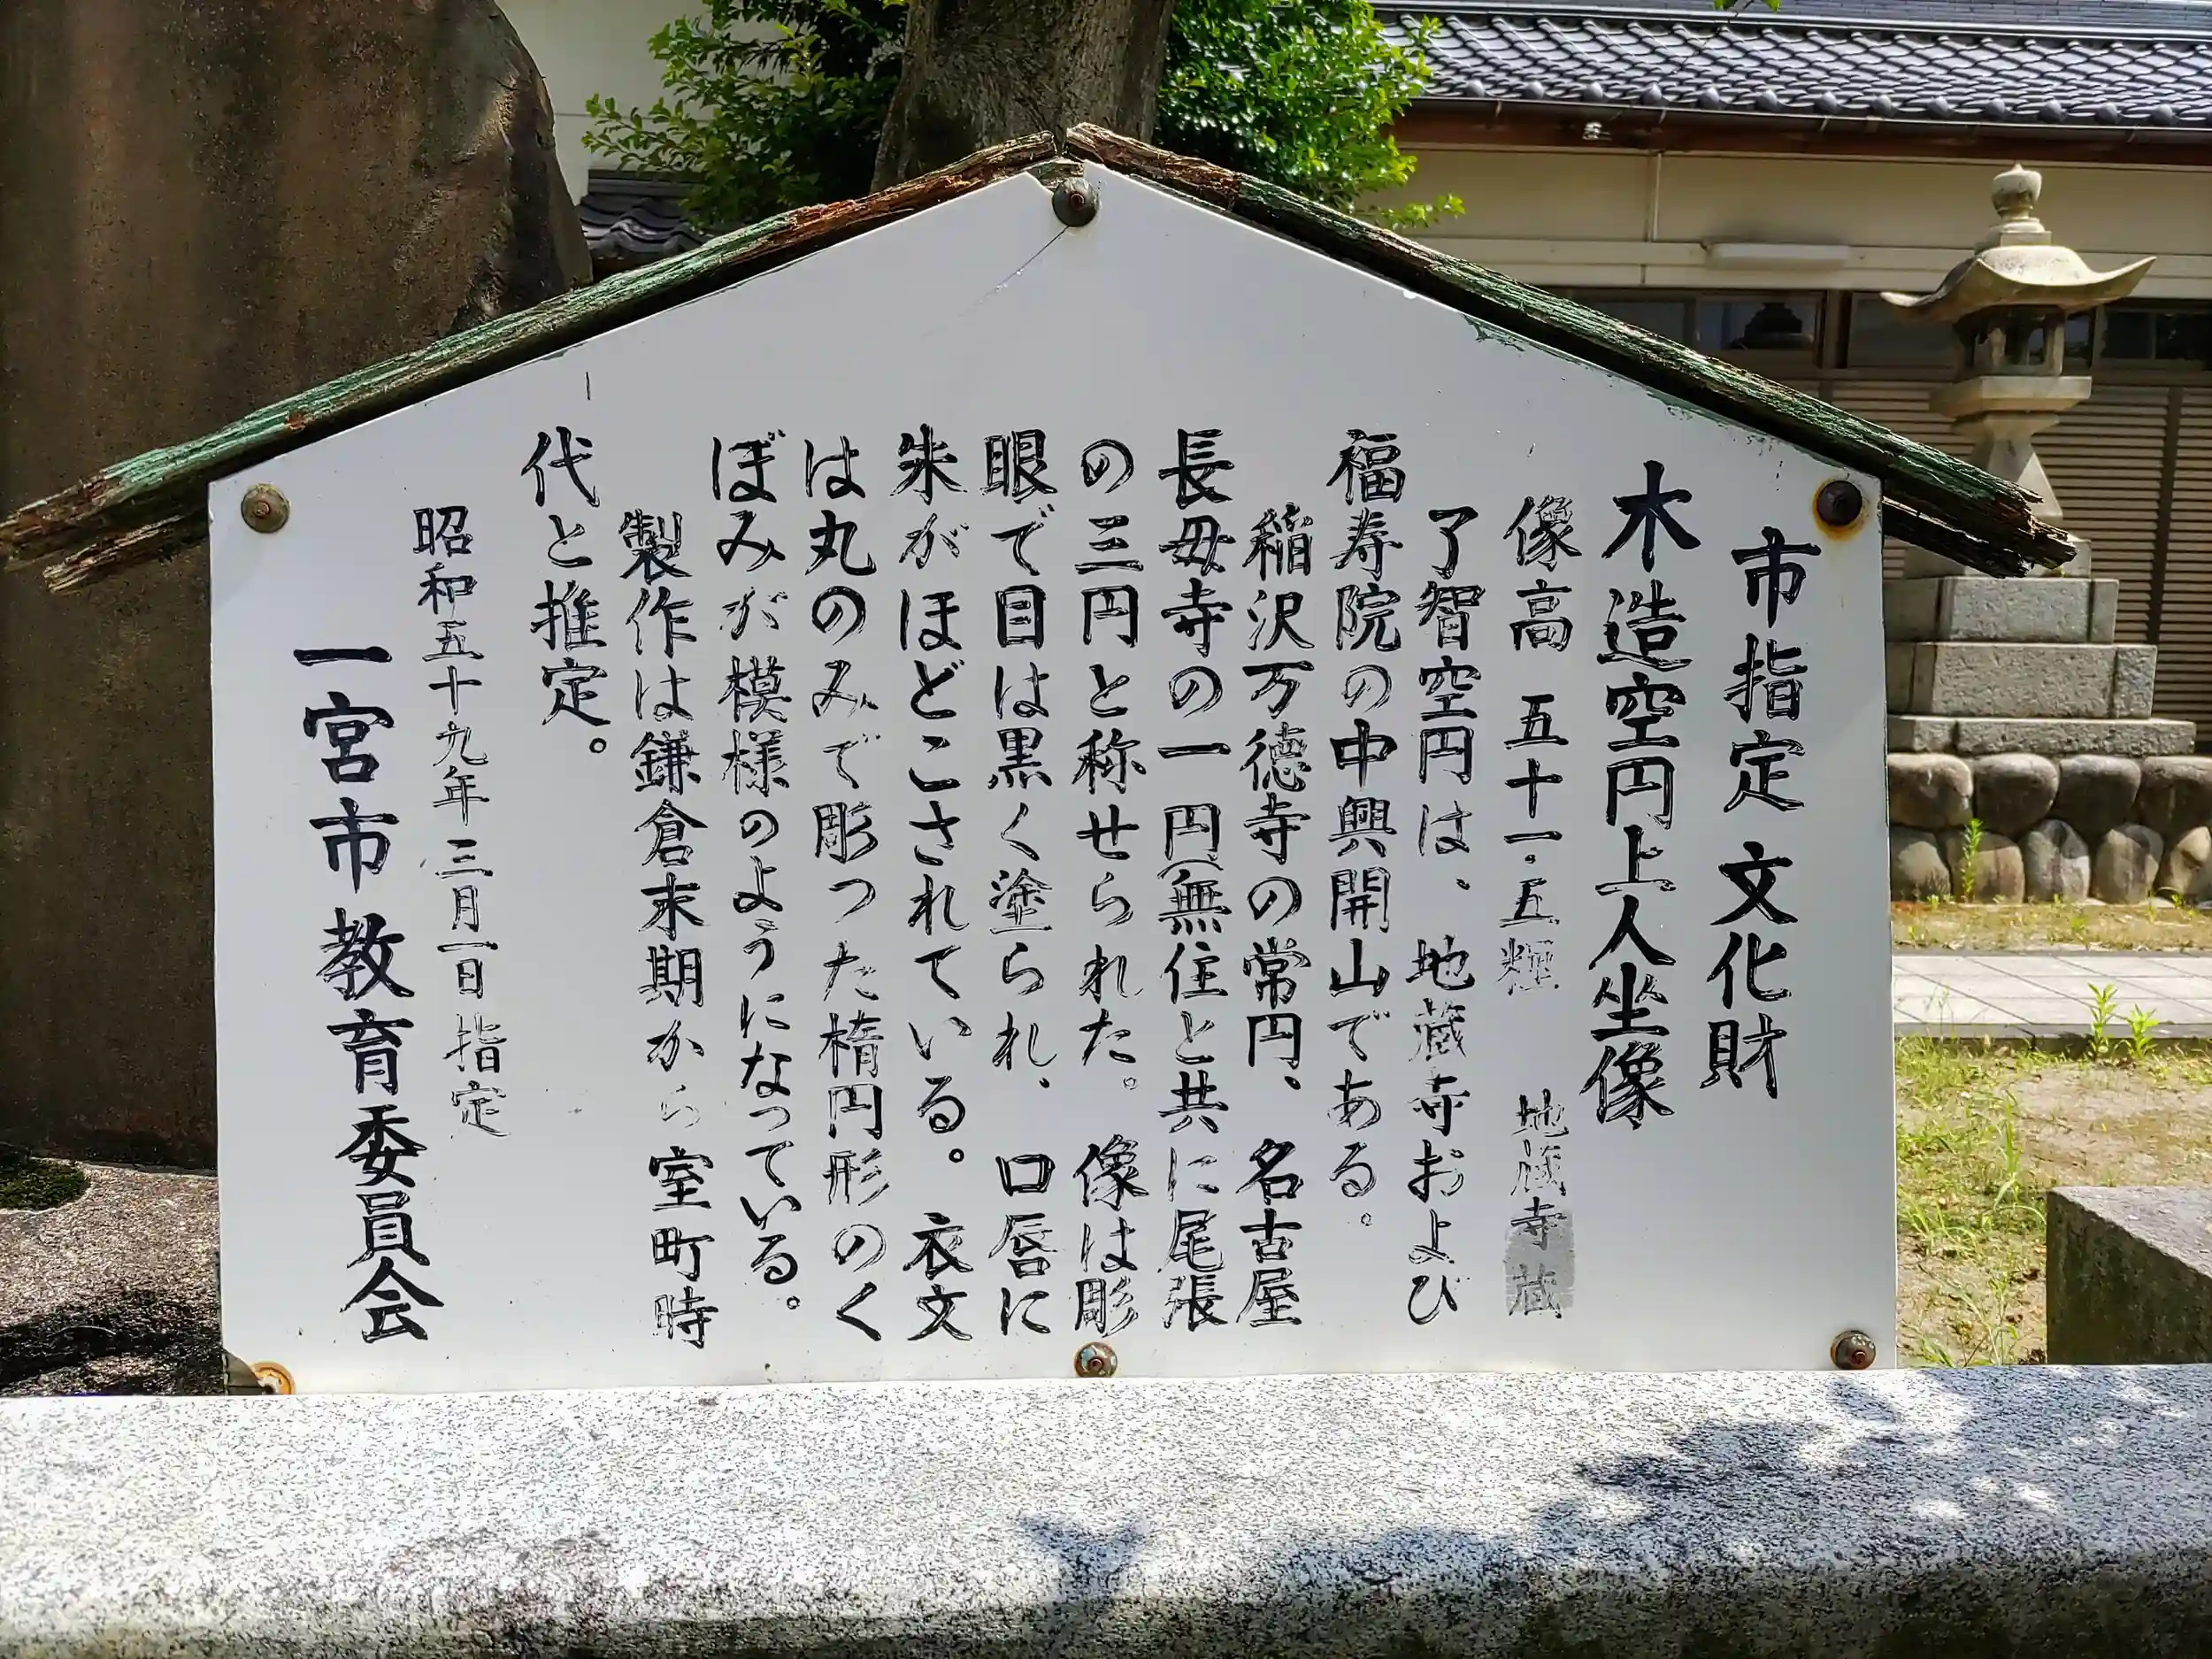 市指定 文化財
木造空円上人坐像
像高 五十一・五糎 地蔵寺蔵
了智空円は、地蔵寺および
福寿院の中興開山である。
稲沢万徳寺の常円、名古屋
長母寺の一円(無住と共に尾張
の三円と称せられた。像は彫
眼で目は黒く塗られ、口唇に
朱がほどこされている。衣文
は丸のみで彫つた楕円形のく
ぼみが模様のようになっている。
製作は鎌倉末期から室町時
代と推定。
昭和五十九年三月一日指定
一宮市教育委員会